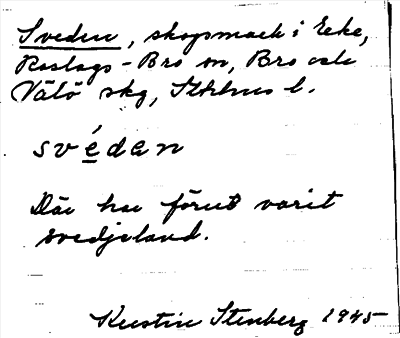 Sveden, skogsmark i Eke,
Roslags-Bro sn, Bro och
Vätö skg, Sthlms l.
svéden
Där har förut varit
svedjeland.
Kerstin Stenberg 1945